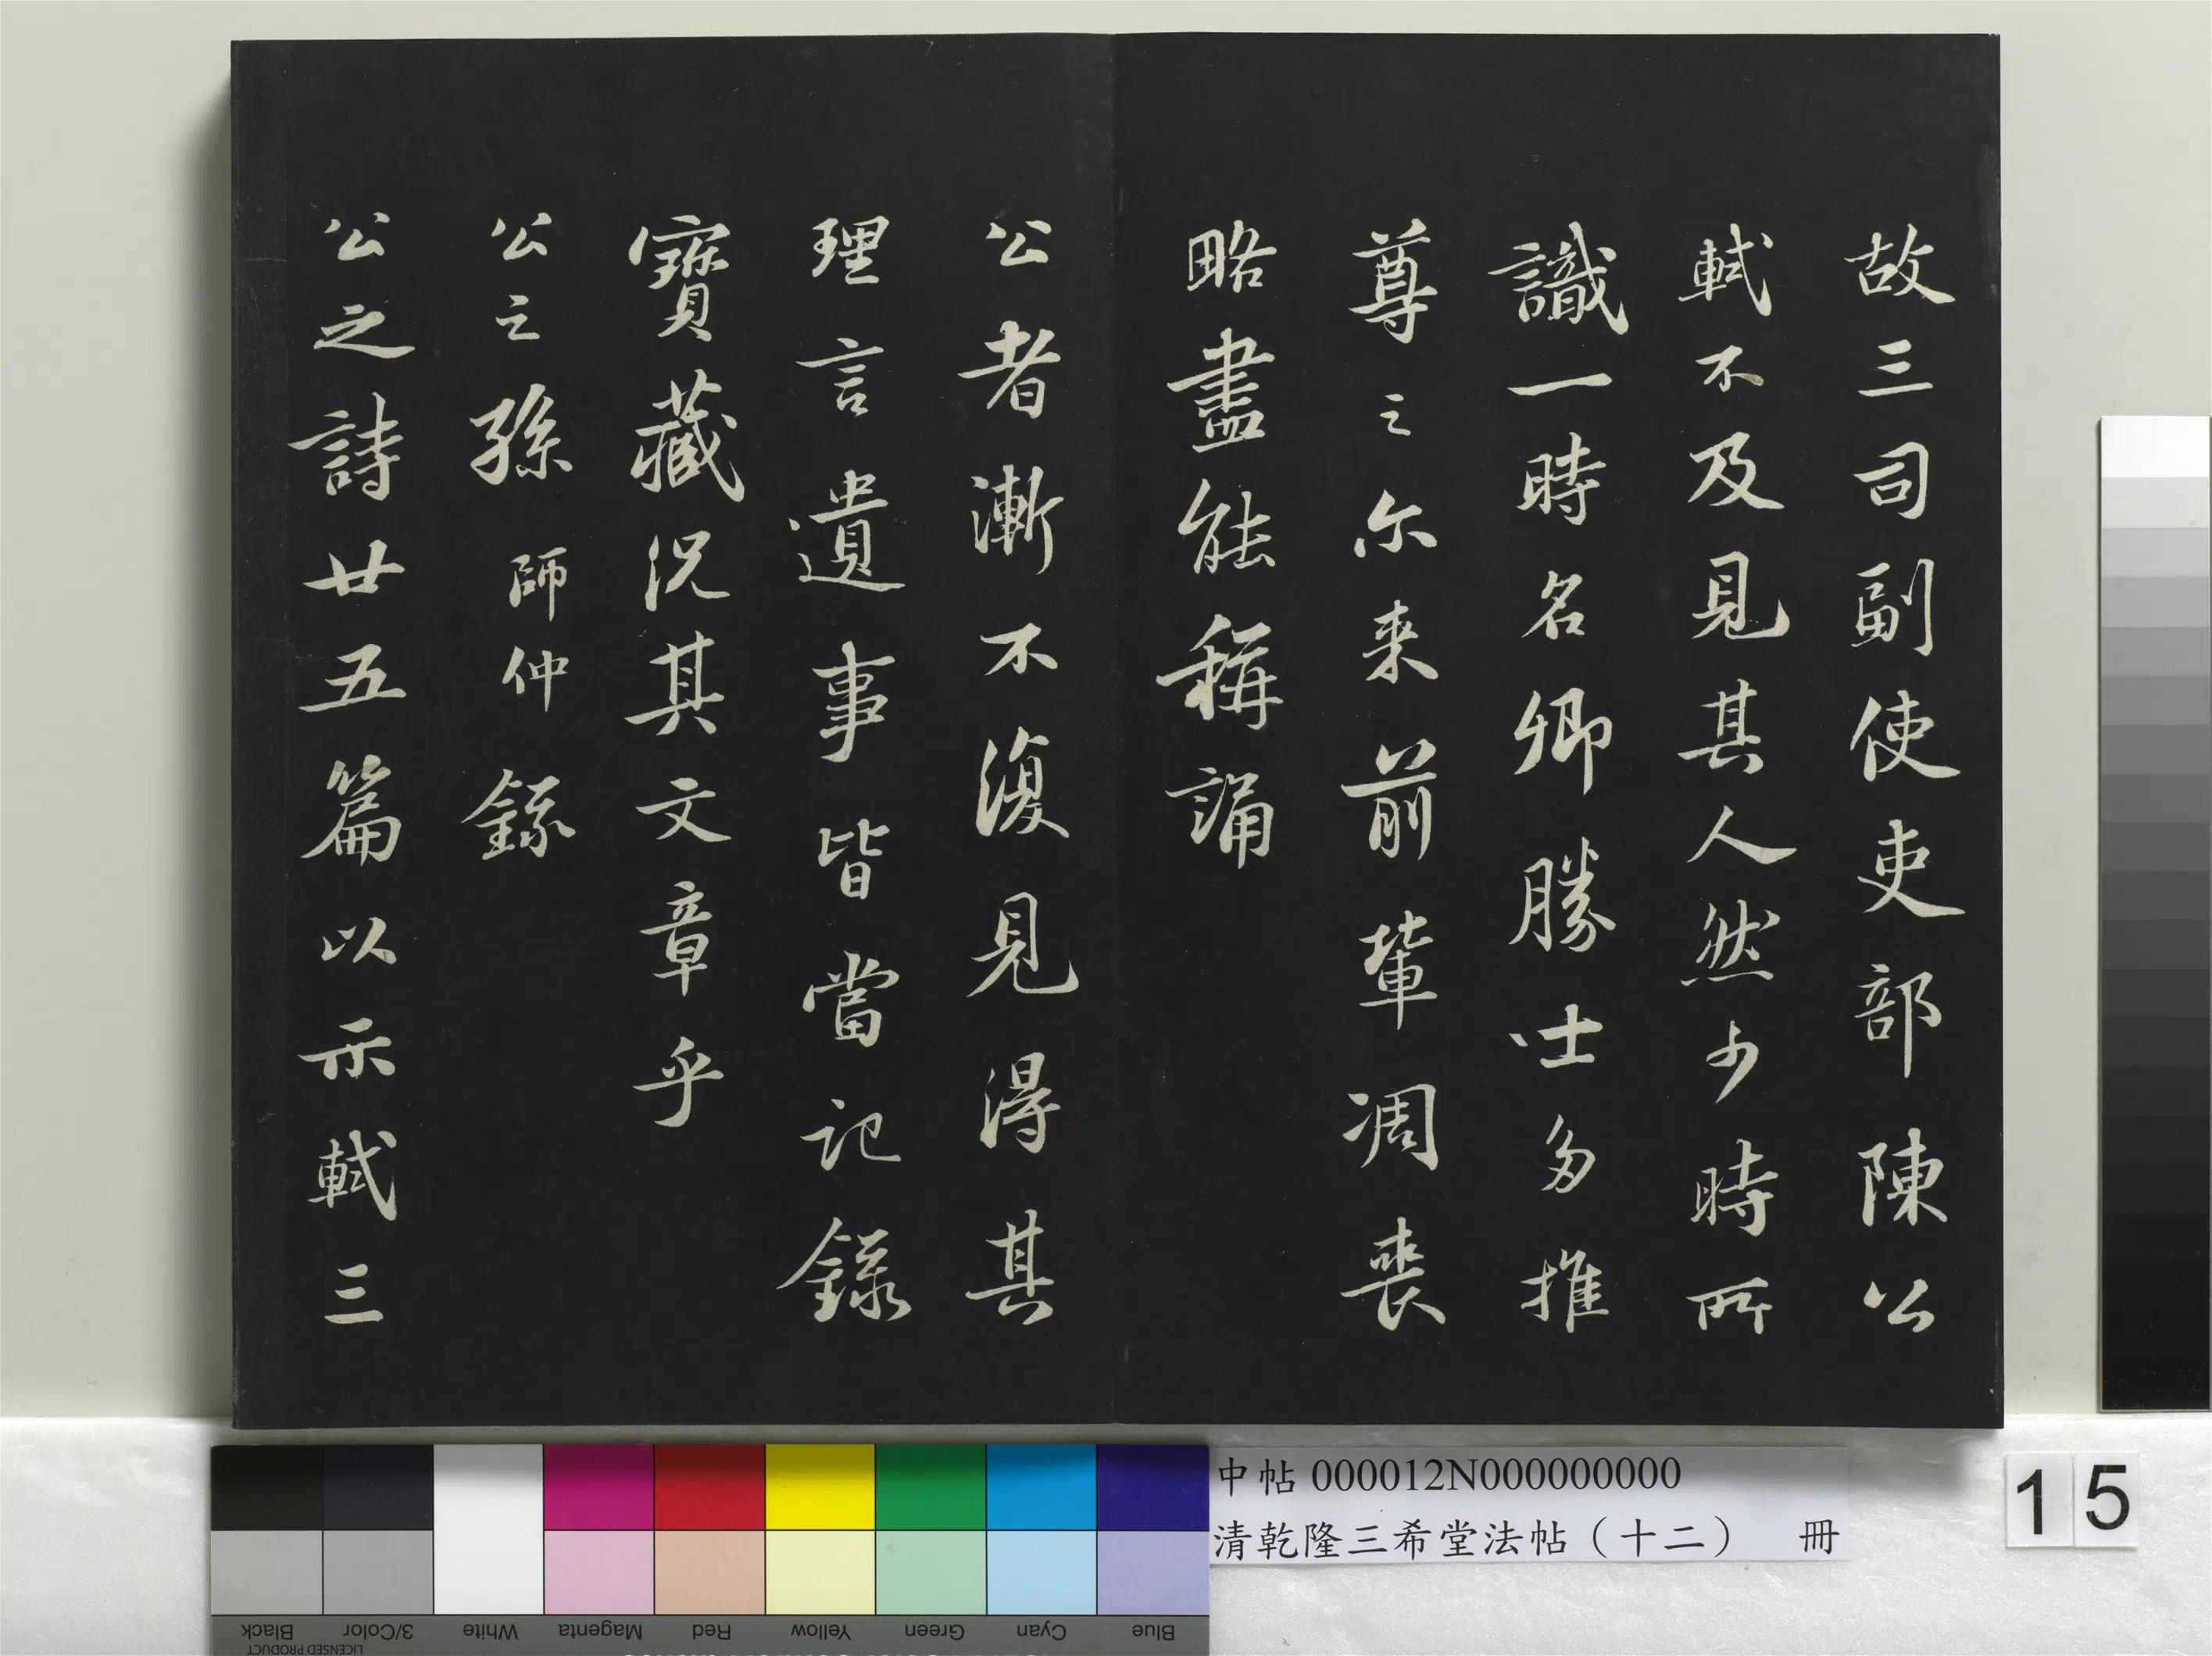 故三司副使吏部陳公
軾不及見其人然少時所
識一時名卿勝士多推
尊之尔来前輩凋喪
略盡能稱誦
公者漸不復見得其
理言遺事皆當記錄
寶藏況其文章乎
公之孫師仲錄
公之詩廿五篇以示軾三
中帖 000012N000000000
清乾隆三希堂法帖（十二） 冊
15
Black
3/Color
White
Magenta
Red
Yellow
Green
Cyan
Blue
LICENSED PRODUCT